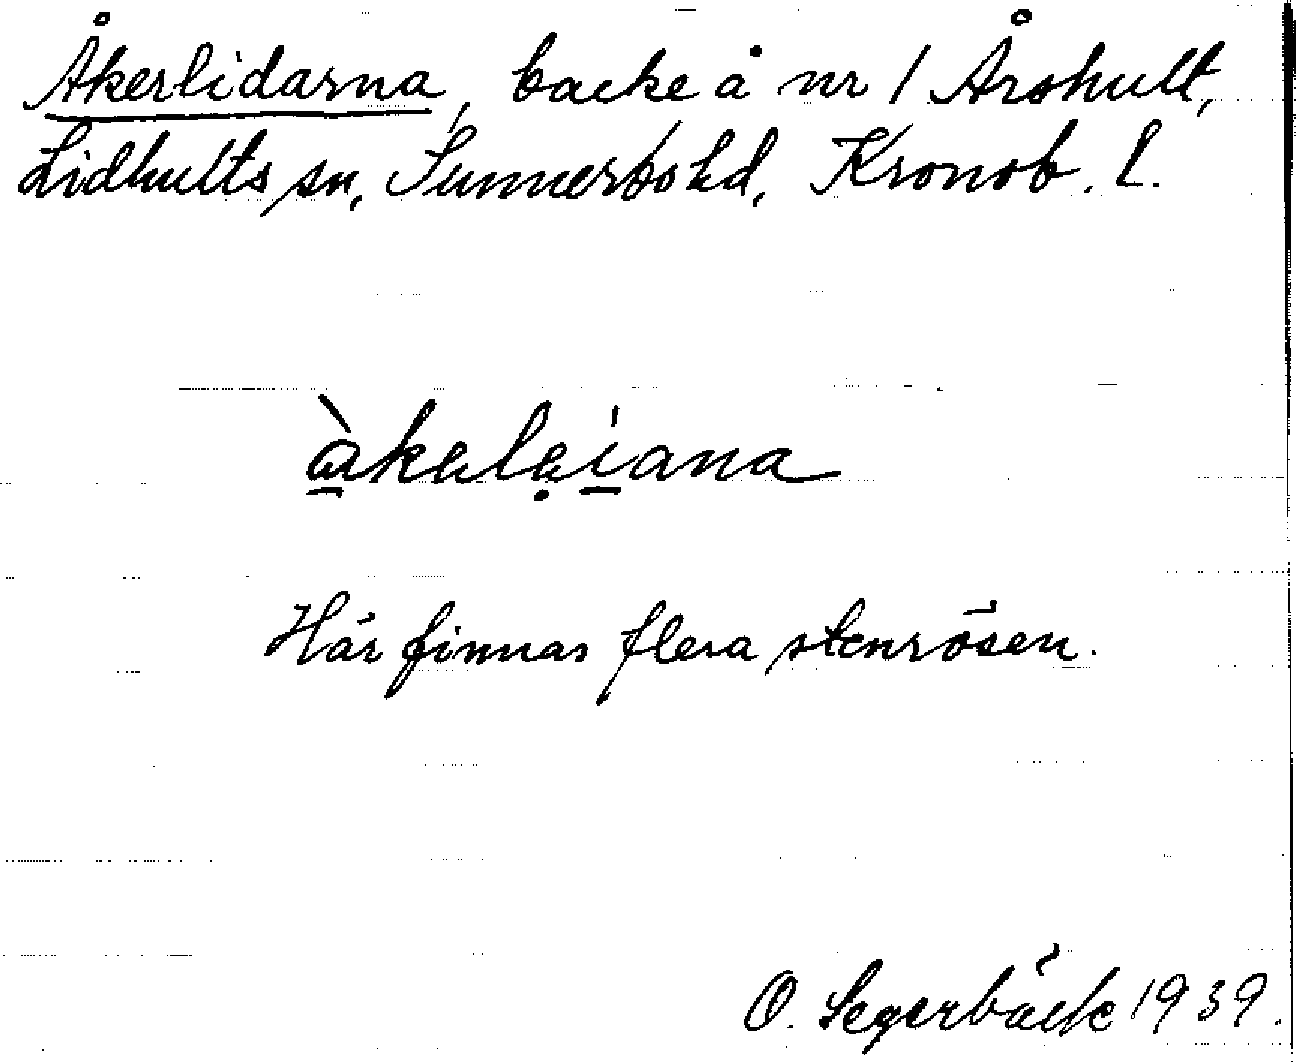 Åkerlidarna, backe å nr 1 Årshult,
Lidhults sn, Sunnerbo hd, Kronob. l.
Här finnas flera stenrösen.
O. Segerbäck 1939.